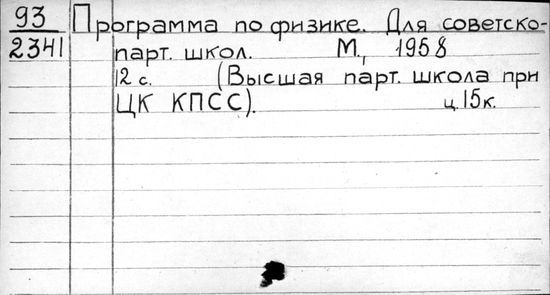 93 Программа по физике. Для советско-
2341 парт. школ. М., 1958
12 с. (Высшая парт. школа при
ЦК КПСС). ц. 15к.